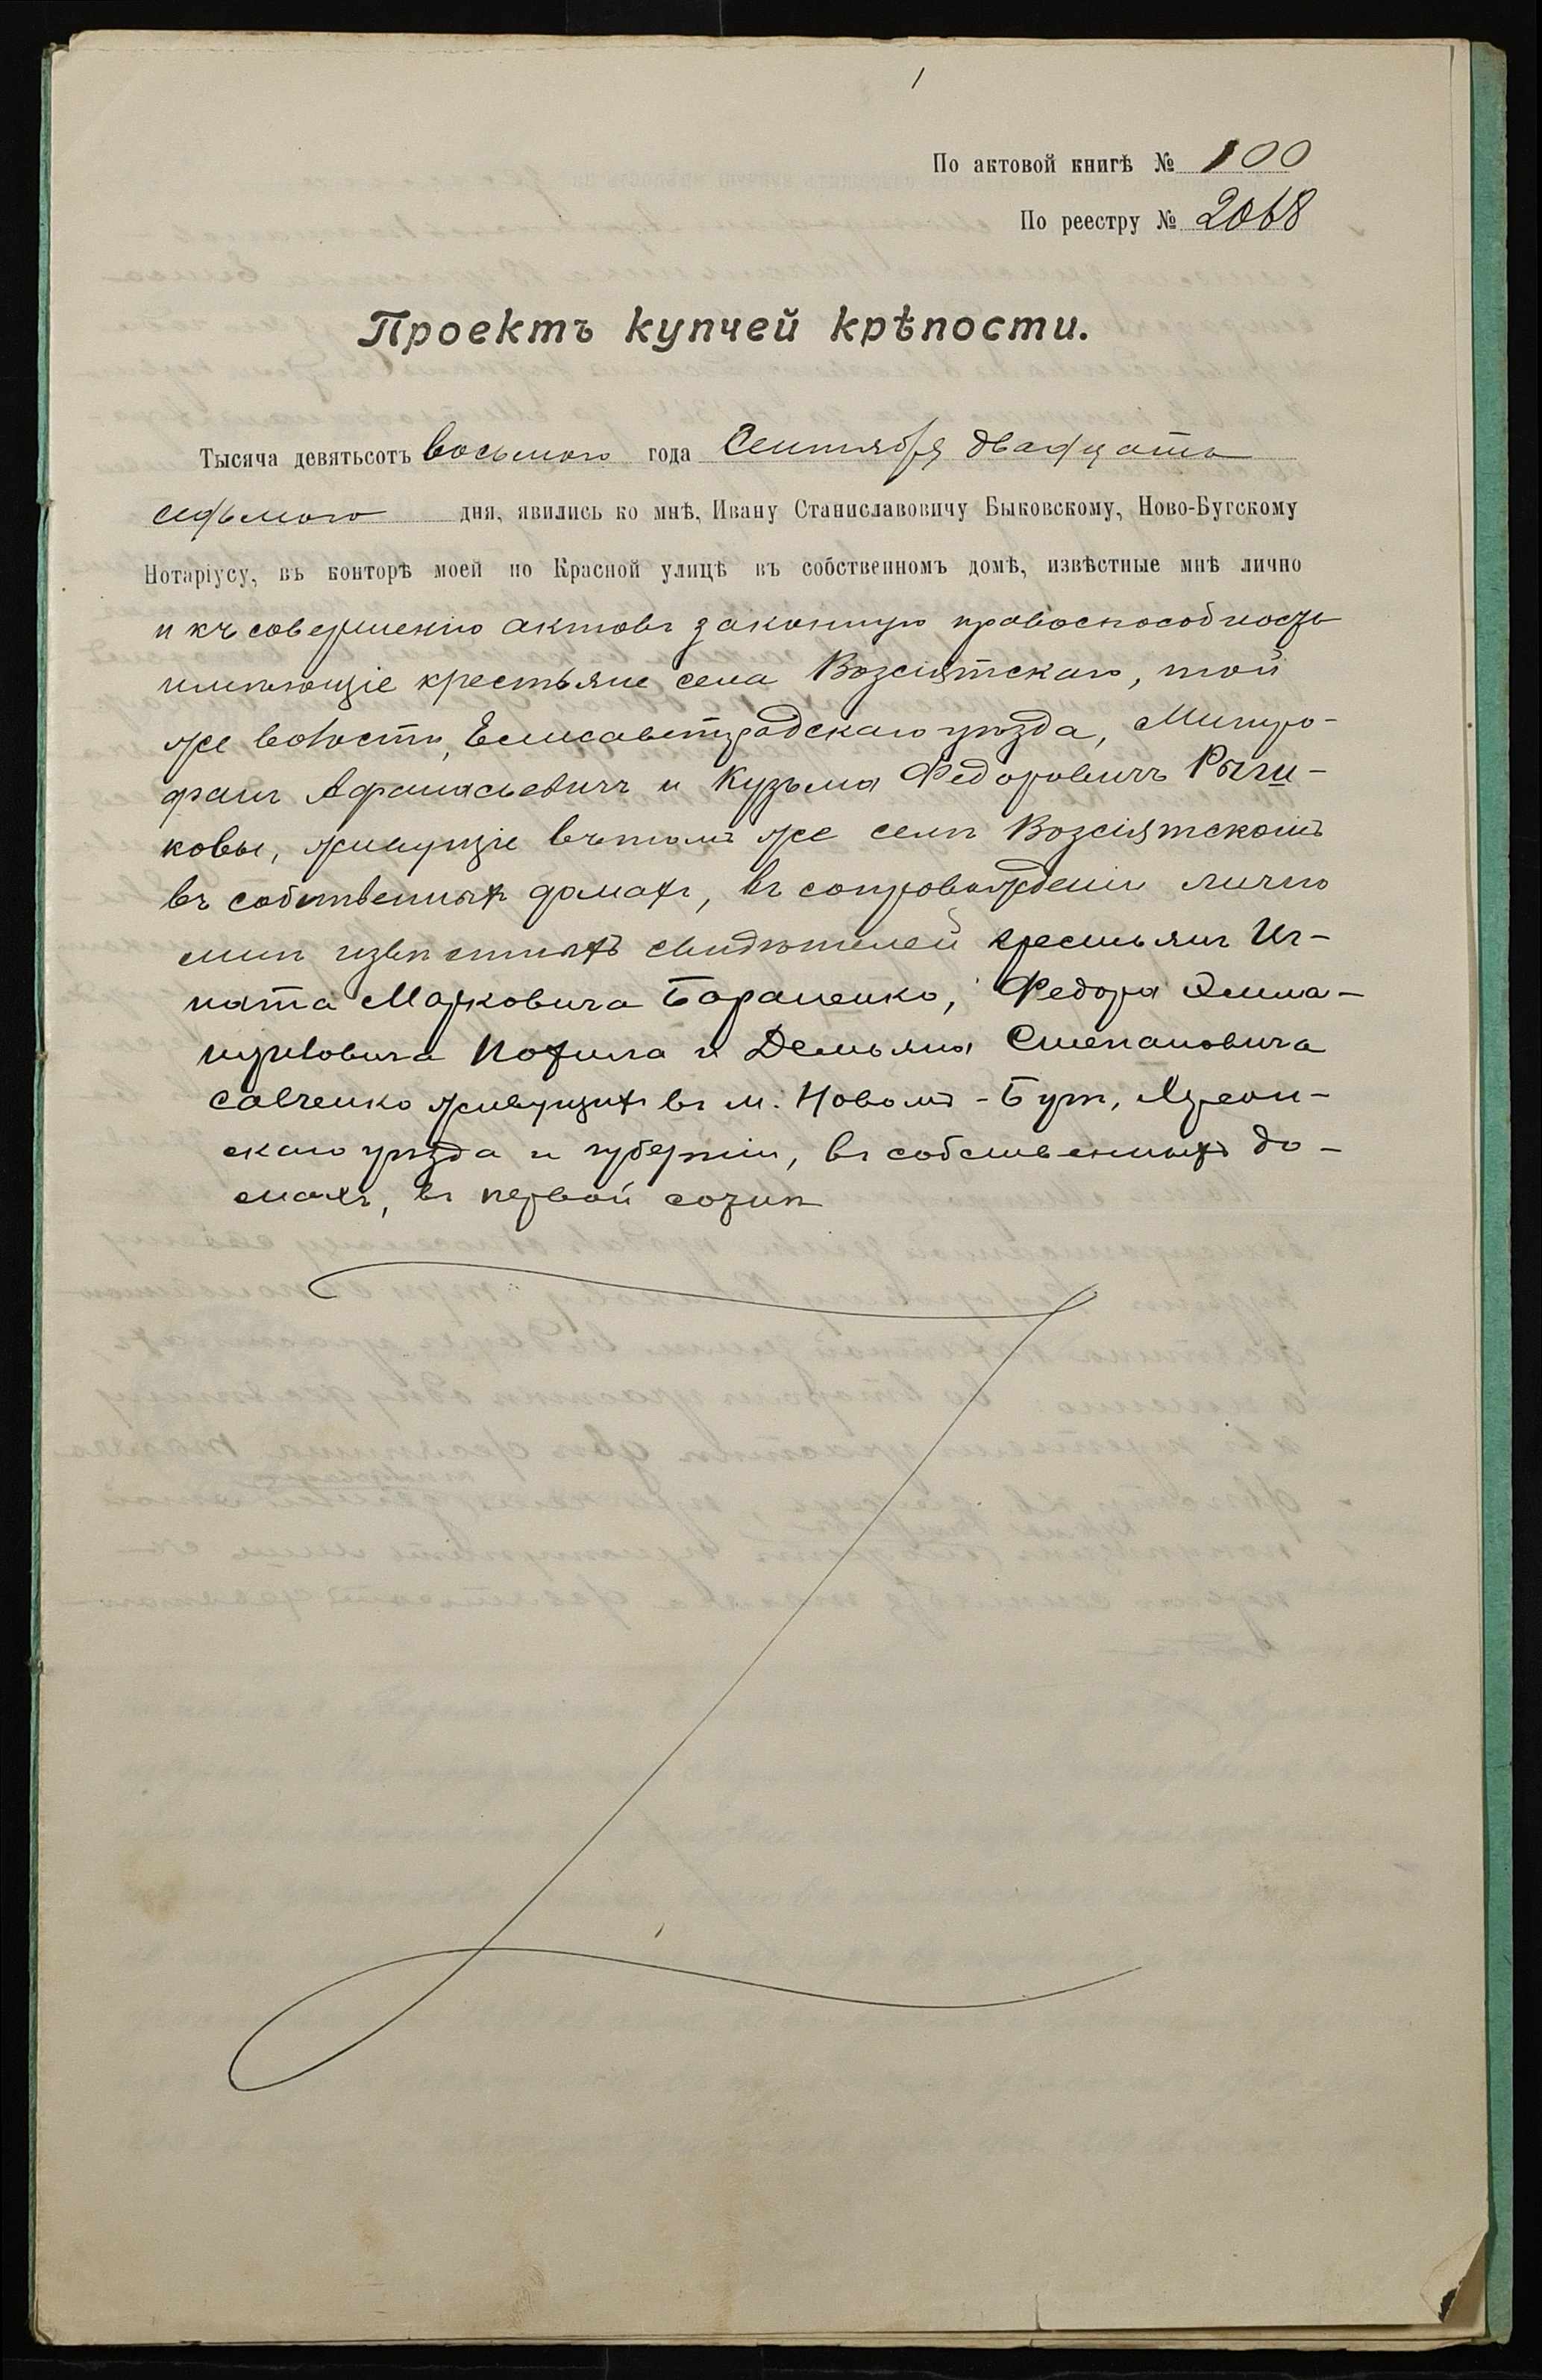 1
По актовой книгѣ № 100
По реестру № 2068
Проектъ купчей крѣпости.
Тысяча девятьсотъ восьмого года Сентября двадцать
седьмого дня, явились ко мнѣ, Ивану Станиславовичу Быковскому, Ново-Бугскому
Нотаріусу, въ конторѣ моей по Красной улицѣ въ собственномъ домѣ, извѣстные мнѣ лично
и къ совершенію актовъ законную правоспособность
имѣющіе крестьяне села Возсіятскаго, той
же волости, Елисаветградскаго уѣзда, Митро-
фанъ Афанасьевичъ и Кузьма Федоровичъ
ковы, живущіе въ томъ же селѣ Возсіятскомъ
въ собственныхъ домахъ, въ сопровожденіи лично
мнѣ извѣстныхъ свидѣтелей крестьянъ Иг-
ната Марковича Бараненко, Федора
Савченко живущихъ въ м. Новомъ-Бугѣ, Херсон-
скаго уѣзда и губерніи, въ собственныхъ до-
махъ, въ первой сотнѣ